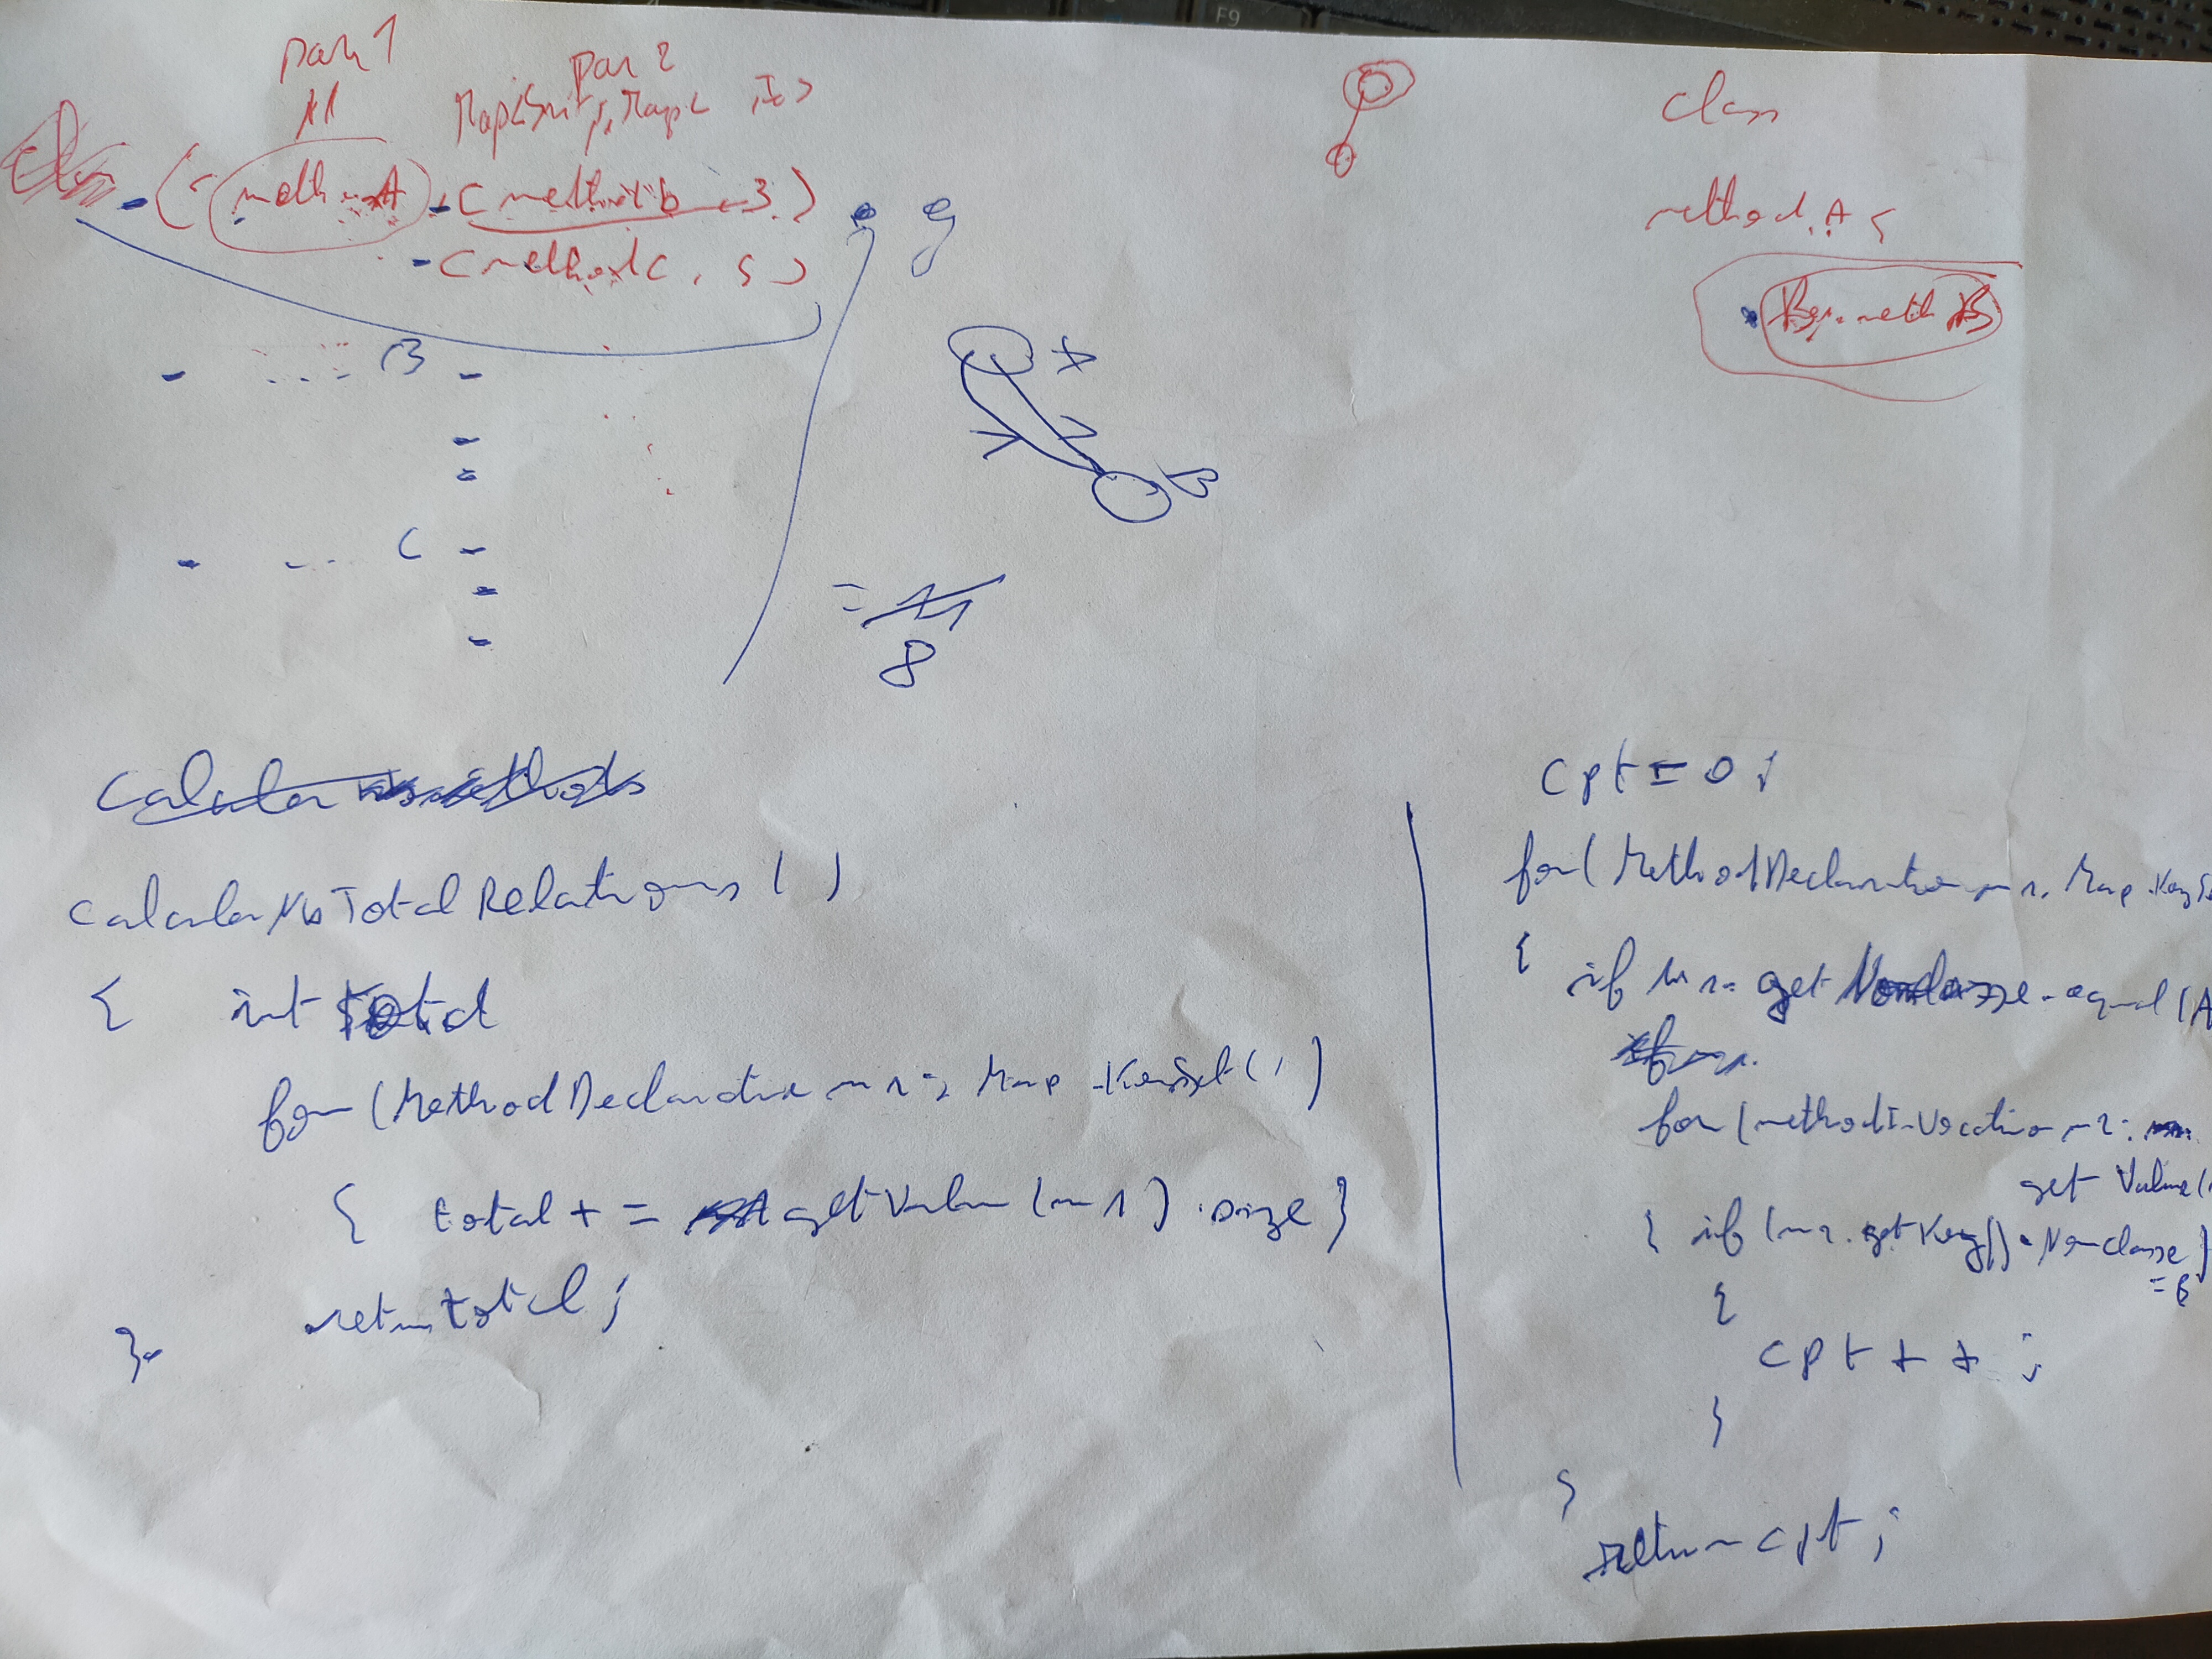 F9
part 1
part 2
M
(- methodA - (methodb - 3)
- (method c, 5)
- ... B -
- ... C -
class
method A {
B
A
B
= 11
8
CalculerNbTotalRelations ( )
{ int total
for (MethodDeclaration m1 : Map.KeySet( )
{ total + = getValue (m1) . size }
return total ;
}
cpt = 0 ;
for ( MethodDeclaration m1 : Map .KeyS
{ if m1. get Nomclasse . equal (A
for (methodInvocation m2 :
get Value (
{ if (m2 . getKey() . Nomclasse )
= B
{
cpt + + ;
}
}
return cpt ;